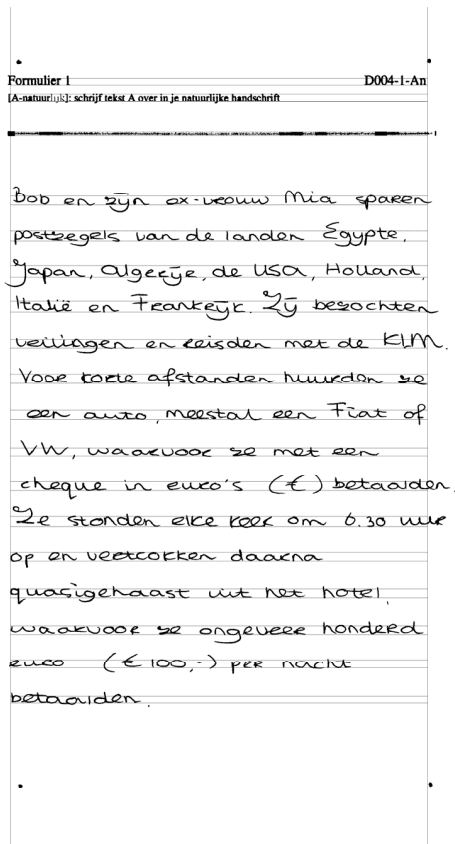 Formulier 1 D004-1-An
[A-natuurlijk]: schrijf tekst A over in je natuurlijke handschrift
Bob en zijn ex-vrouw Mia sparen
postzegels van de landen Egypte,
Japan, Algerije, de USA, Holland,
Italië en Frankrijk. Zij bezochten
veilingen en reisden met de KLM.
Voor korte afstanden huurden ze
een auto, meestal een Fiat of
VW, waarvoor ze met een
cheque in euro's (€) betaalden.
Ze stonden elke keer om 6.30 uur
op en vertrokken daarna
quasigehaast uit het hotel,
waarvoor ze ongeveer honderd
euro (€ 100,-) per nacht
betaalden.